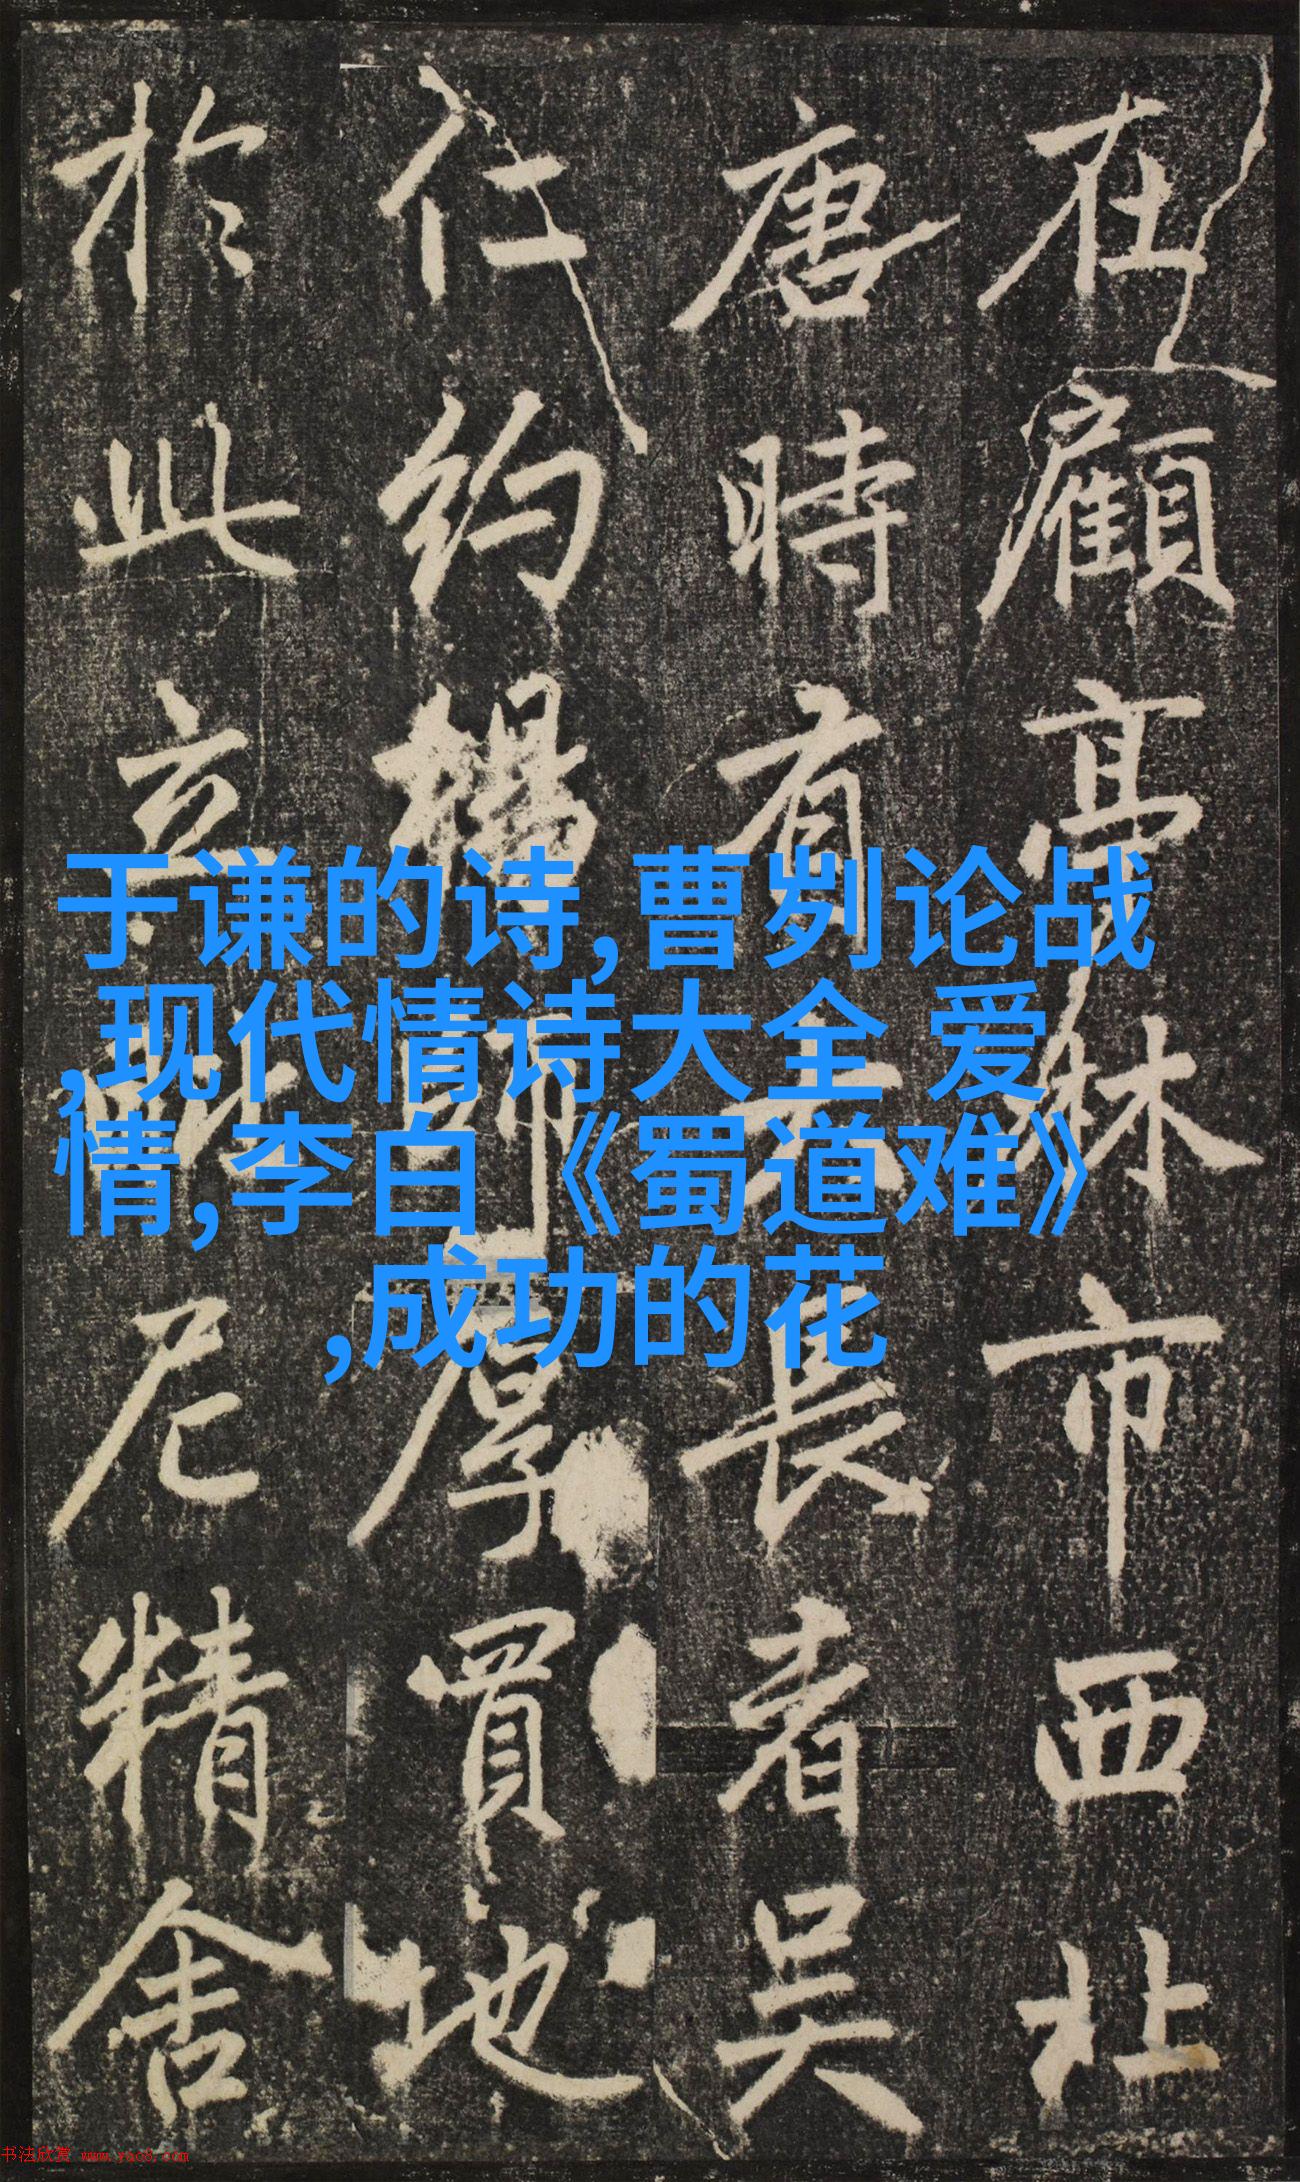 在顧亭林市西北
唐時有長者吳
仁約厚買地
於此立尼精舍
于谦的诗,曹刿论战
,现代情诗大全 爱
情,李白《蜀道难》
,成功的花
书法欣赏 www.yac8.com